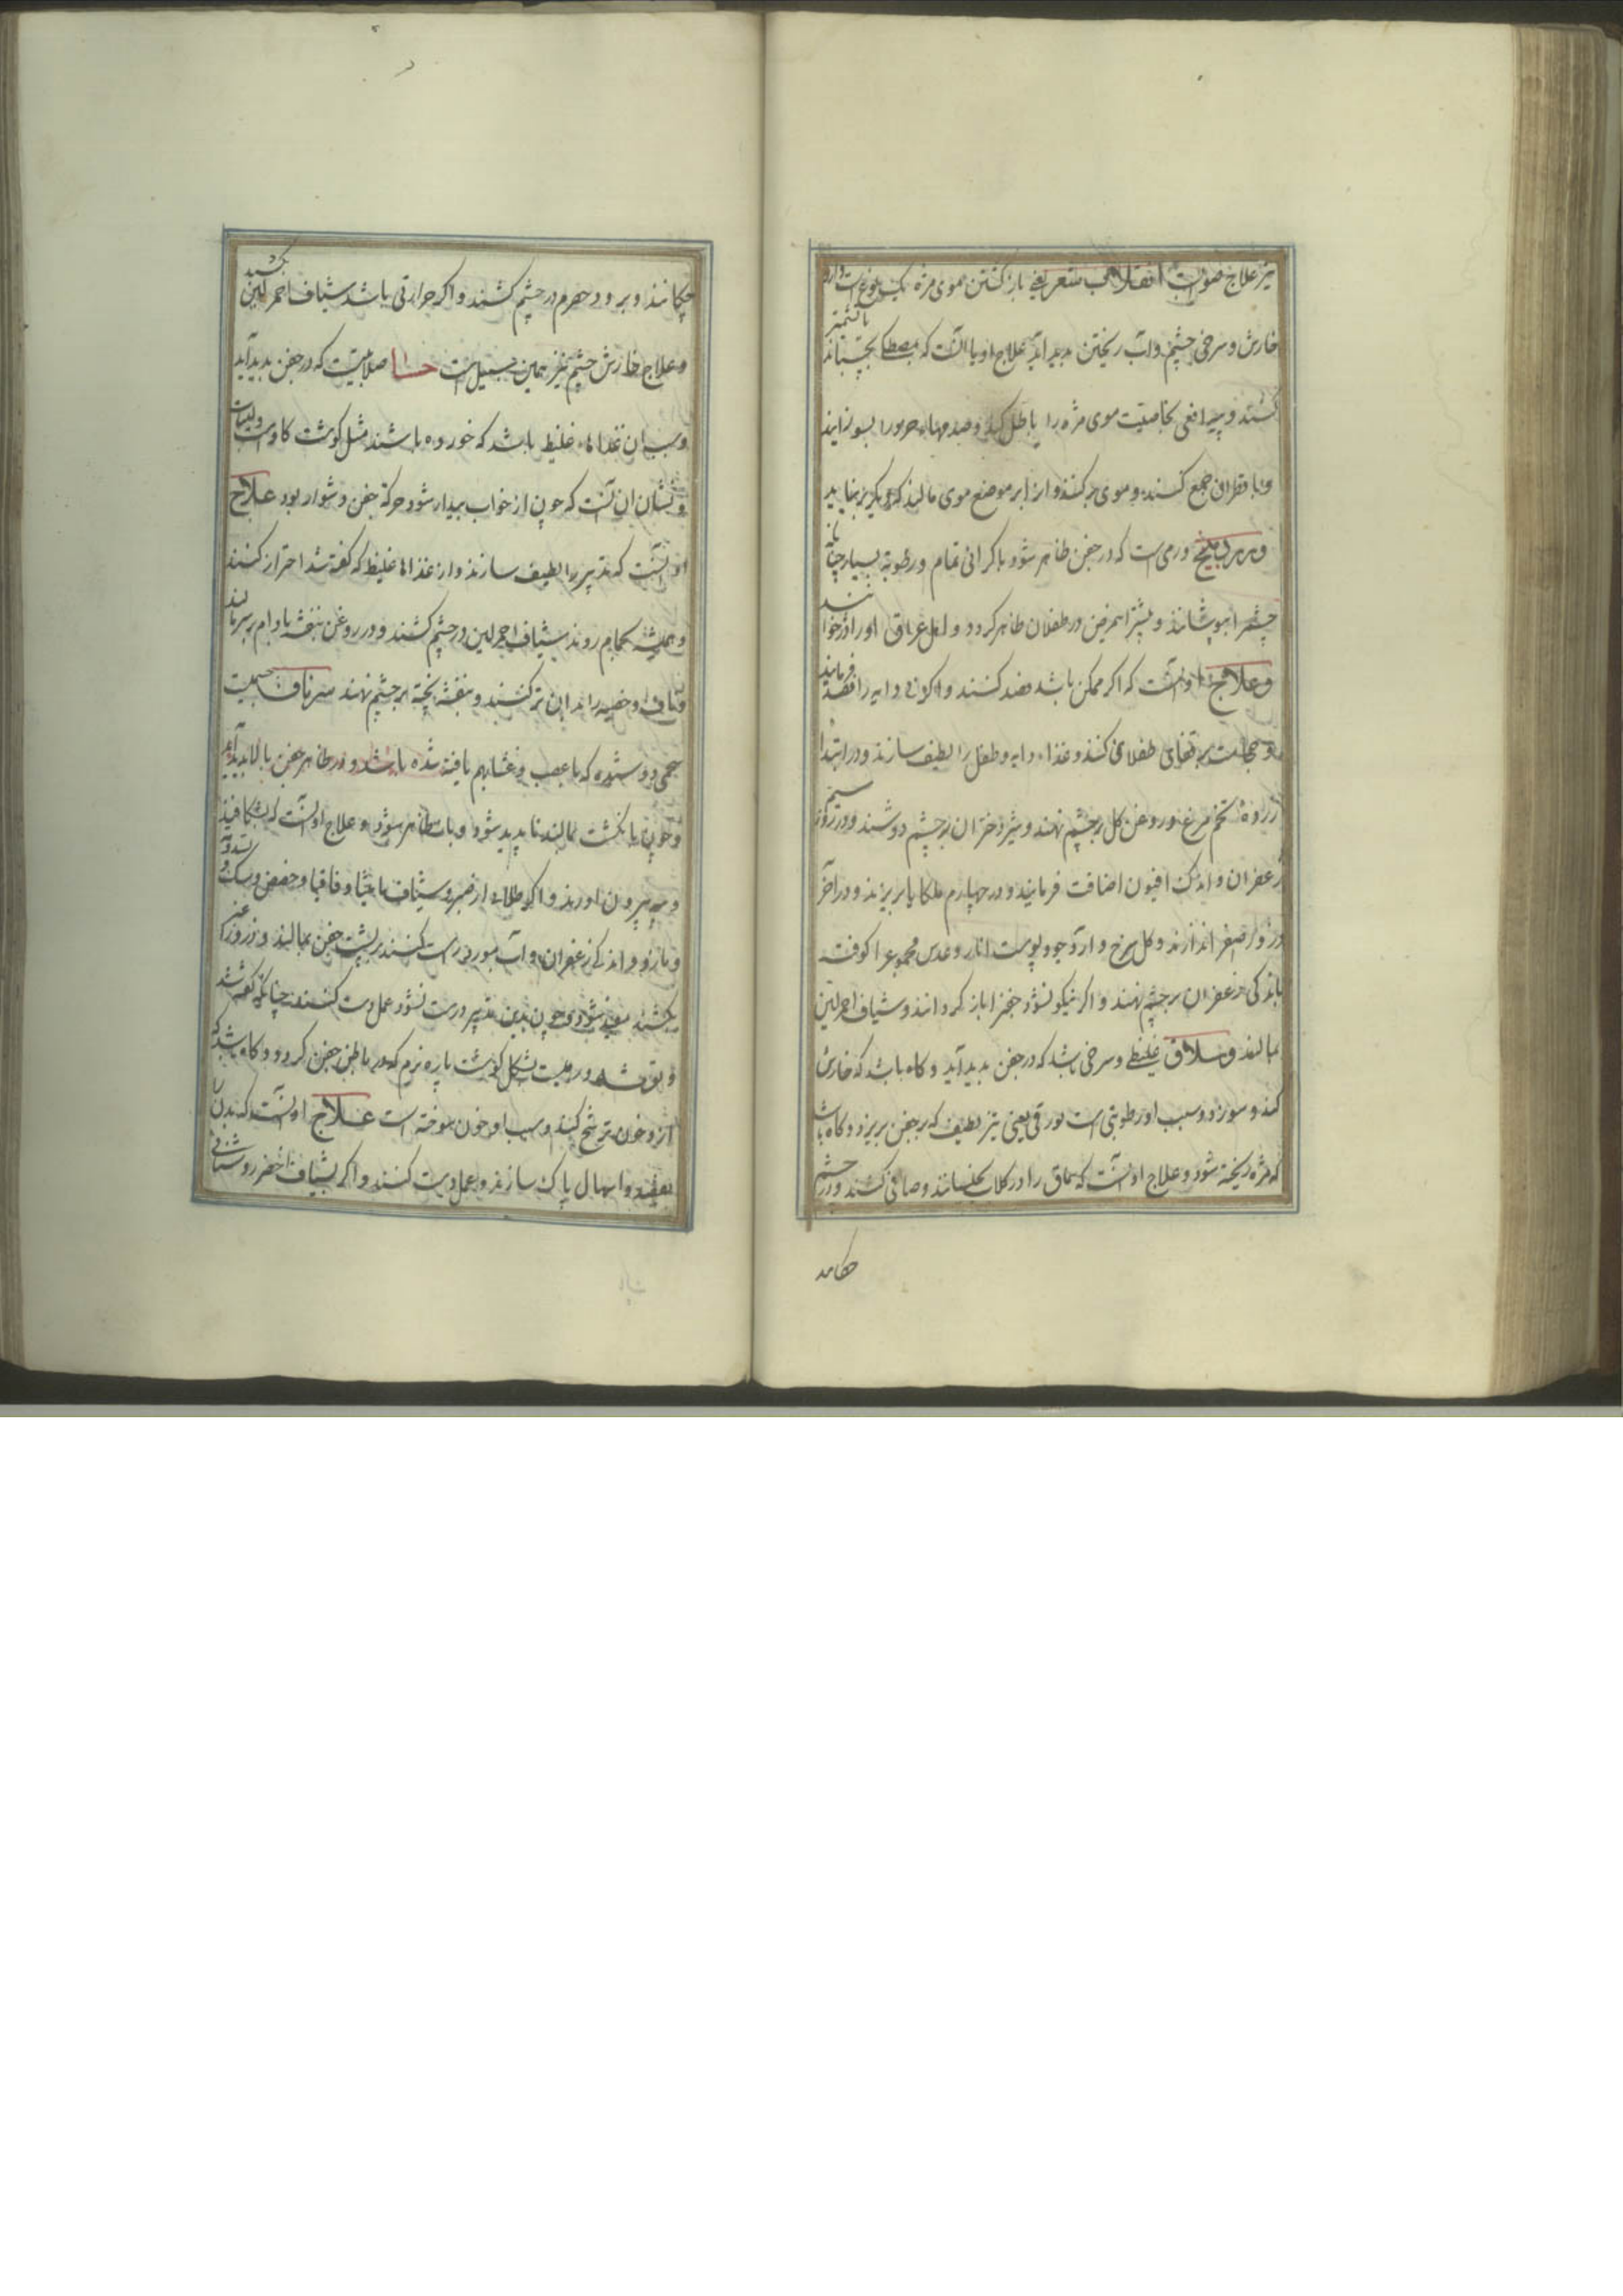 نیز علاج صوابست انقلاب شعر یعنی باز کشتن موی مژه
خارش و سرخی چشم و آب ریختن بدید آید علاج او یا آنست که بمصطکی بچسبانند
کنند و پیه افعی بخاصیت موی مژه را باطل کند و صدفهاء را بسوزانند
و با قطران جمع کنند و موی بر کنند و از ان بر موضع موی مالند که دیگر بر نیاید
ورمی است که در جفن ظاهر شود با کرانی تمام و رطوبة بسیار چنانک
چشم را بپوشاند و بیشتر این مرض در طفلان ظاهر کردد و اهل عراق او را
و علاج او آنست که اگر ممکن باشد فصد کنند و اکر نی دایه را فصد فرمایند
و حجامت بر قفای طفلان کنند و غذاء دایه و طفل را لطیف سازند و در ابتدا
زردهٔ تخم مرغ و روغن کل بر چشم نهند و شیر دختران بر چشم دوشند و در سیم روز
زعفران و اندک افیون اضافت فرمایند و در چهارم ملکایا بریزند و در آخر
ذرور اصفر اندازند و کل سرخ و آرد جو و پوست انار و عدس مجموع را کوفته
باندکی زعفران بر چشم نهند و اکر نیکو نشود جفن را باز کردانند و شیاف احمر لین
بمالند و سلاق غلیظی و سرخی باشد که در جفن بدید آید و کاه باشد که خارش
کند و سوزد و سبب او رطوبتی است بورقی یعنی تیز لطیف که بر جفن بریزد و کاه باشد
که مژه ریخته شود و علاج او آنست که سماق را در کلاب بخیسانند و صافی کنند و در چشم
چکانند
چکانند و برود حصرم در چشم کشند و اکر حرارتی باشد شیاف احمر لین کشند
و علاج خارش چشم نیز همین سبیل است جسا صلابتیست که در جفن بدید آید
و سبب ان غذاهاء غلیظ باشد که خورده باشند مثل کوشت کاو و لبنیات
و نشان ان آنست که چون از خواب بیدار شود حرکة جفن دشوار بود علاج
او آنست که تدبیر را لطیف سازند و از غذاها غلیظ که گفته شد احتراز کنند
و همیشه بحمام روند و شیاف احمر لین در چشم کشند و در روغن بنفشه بادام بر سر مالند
و ناف و خصیه را بدان تر کنند و بنفشه پخته بر چشم نهند شرناق جسمیست
شحمی دوسنده که با عصب و غشا بهم بافته شده باشد و در ظاهر جفن بالا بدید آید
و چون بانکشت بمالند ناپدید شود و باز ظاهر شود و علاج او آنست که بشکافند
و بیرون اورند و اکر طلاء از صبر و شیاف مامیثا و قاقیا و حضض و سک
و مازو و اندکی زعفران و آب مورد راست کنند بر پشت جفن بمالند و ذرور
بکشند مفید شود و چون بدین تدبیر درست نشود عمل دست کنند چنانکه گفته شد
و توثه ورمیست بشکل کوشت پاره نرم که در باطن جفن کردد و کاه باشد که
ازو خون ترشح کند و سبب او خون سوخته است علاج او آنست که بدن را
بفصد و اسهال پاک سازند و عمل دست کنند و اکر بشیاف اخضر و روشنائی